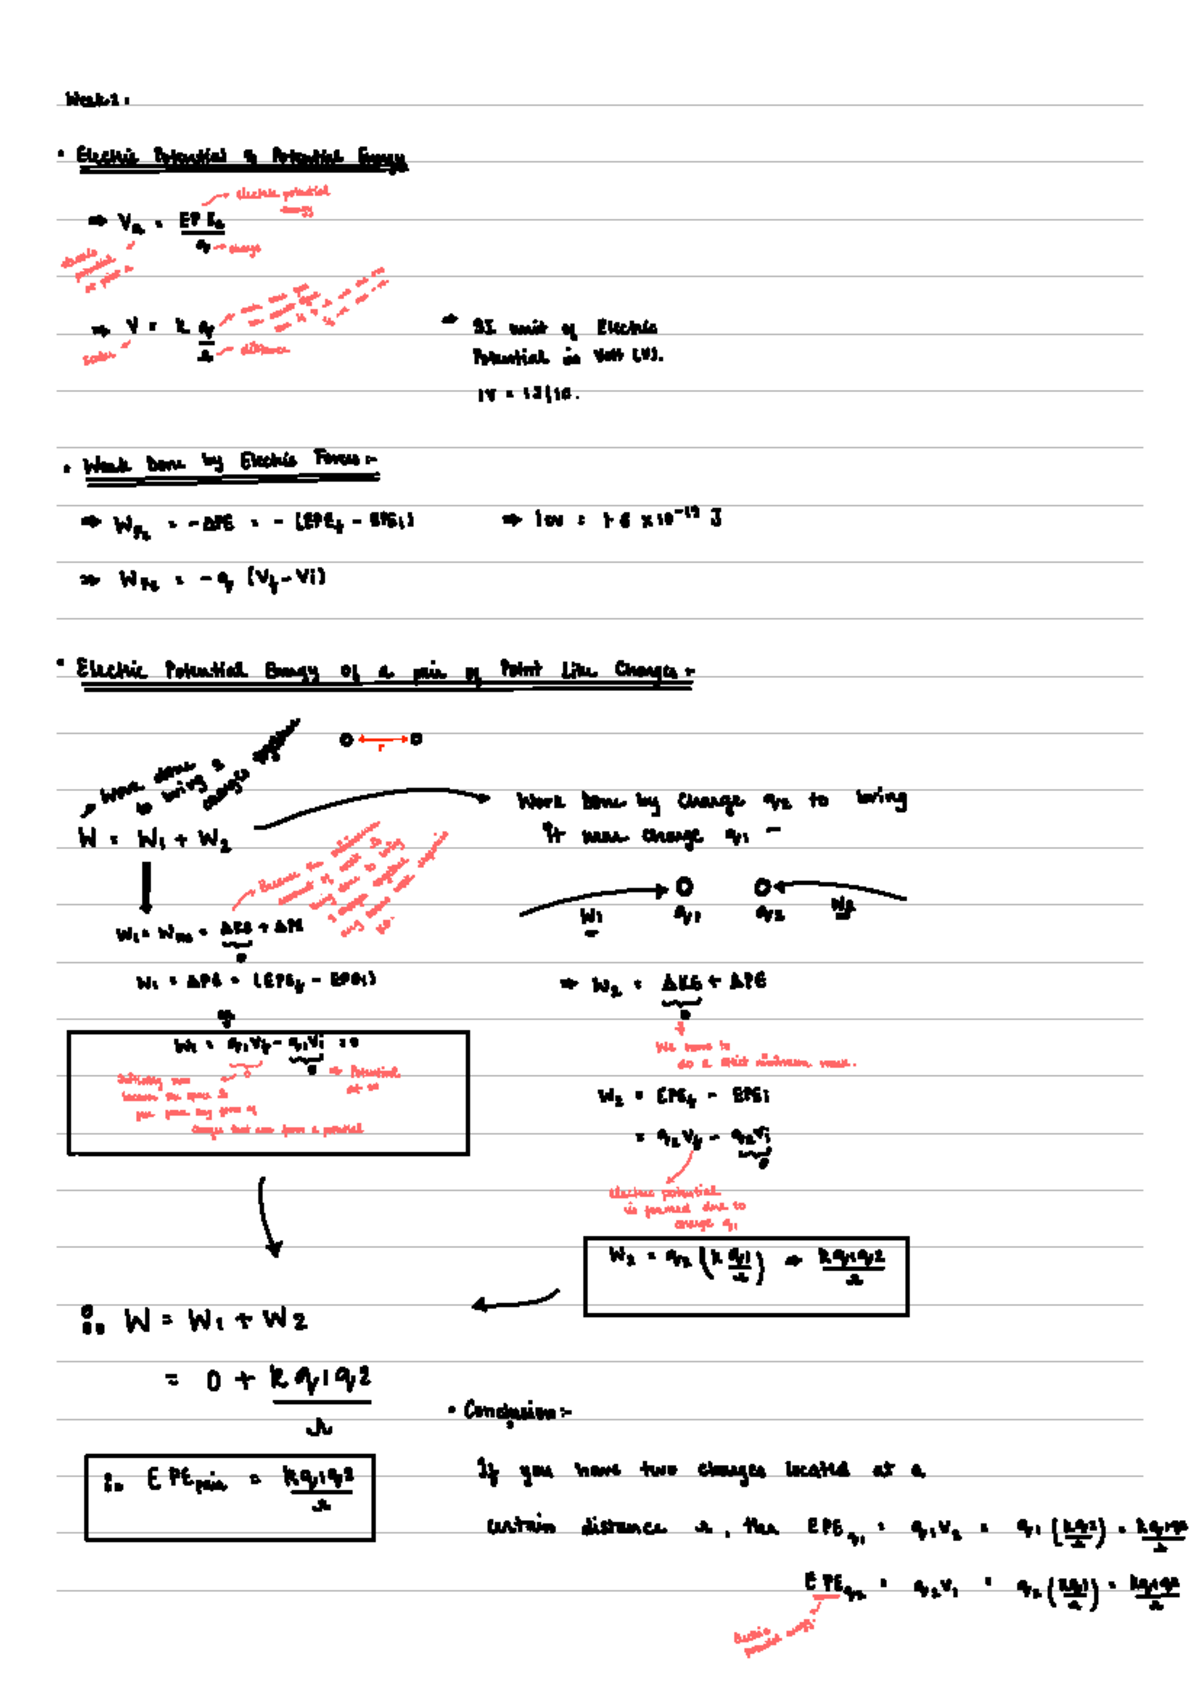 Week 2:
• Electric Potential & Potential Energy
→ Electric potential energy
⇒ Va = EPEa / q → charge
Electric potential at point a
⇒ V = k q / r → distance
scalar
→ SI unit of Electric
Potential is Volt (V).
1V = 1J/1C.
• Work Done by Electric Forces:-
⇒ W = -ΔPE = - (EPEf - EPEi) ⇒ 1ev = 1.6 × 10⁻¹⁹ J
⇒ W = -q (Vf - Vi)
• Electric Potential Energy of a pair of Point Like Charges:-
r
→ Work done to bring 2 charges together
W = W1 + W2
Work Done by charge q2 to bring
it near charge q1 -
→ Because the minimum amount of work
W1 q1 q2 W2
W1 = Wnc = ΔKE + ΔPE
0
W1 = ΔPE = (EPEf - EPEi)
⇒ W2 = ΔKE + ΔPE
0
We have to
do a strict minimum work.
W1 = q1Vf - q1Vi = 0
0 0 → Potential at ∞
because the space is
charge that can form a potential
W2 = EPEf - EPEi
= q2Vf - q2Vi
0
Electric potential
is formed due to
charge q1
W2 = q2 (k q1 / r) ⇒ kq1q2 / r
∴ W = W1 + W2
= 0 + kq1q2 / r
∴ EPEpair = kq1q2 / r
• Conclusion:-
If you have two charges located at a
certain distance r, then EPEq1 = q1V2 = q1 (kq2 / r) = kq1q2 / r
EPEq2 = q2V1 = q2 (kq1 / r) = kq1q2 / r
Electric potential energy